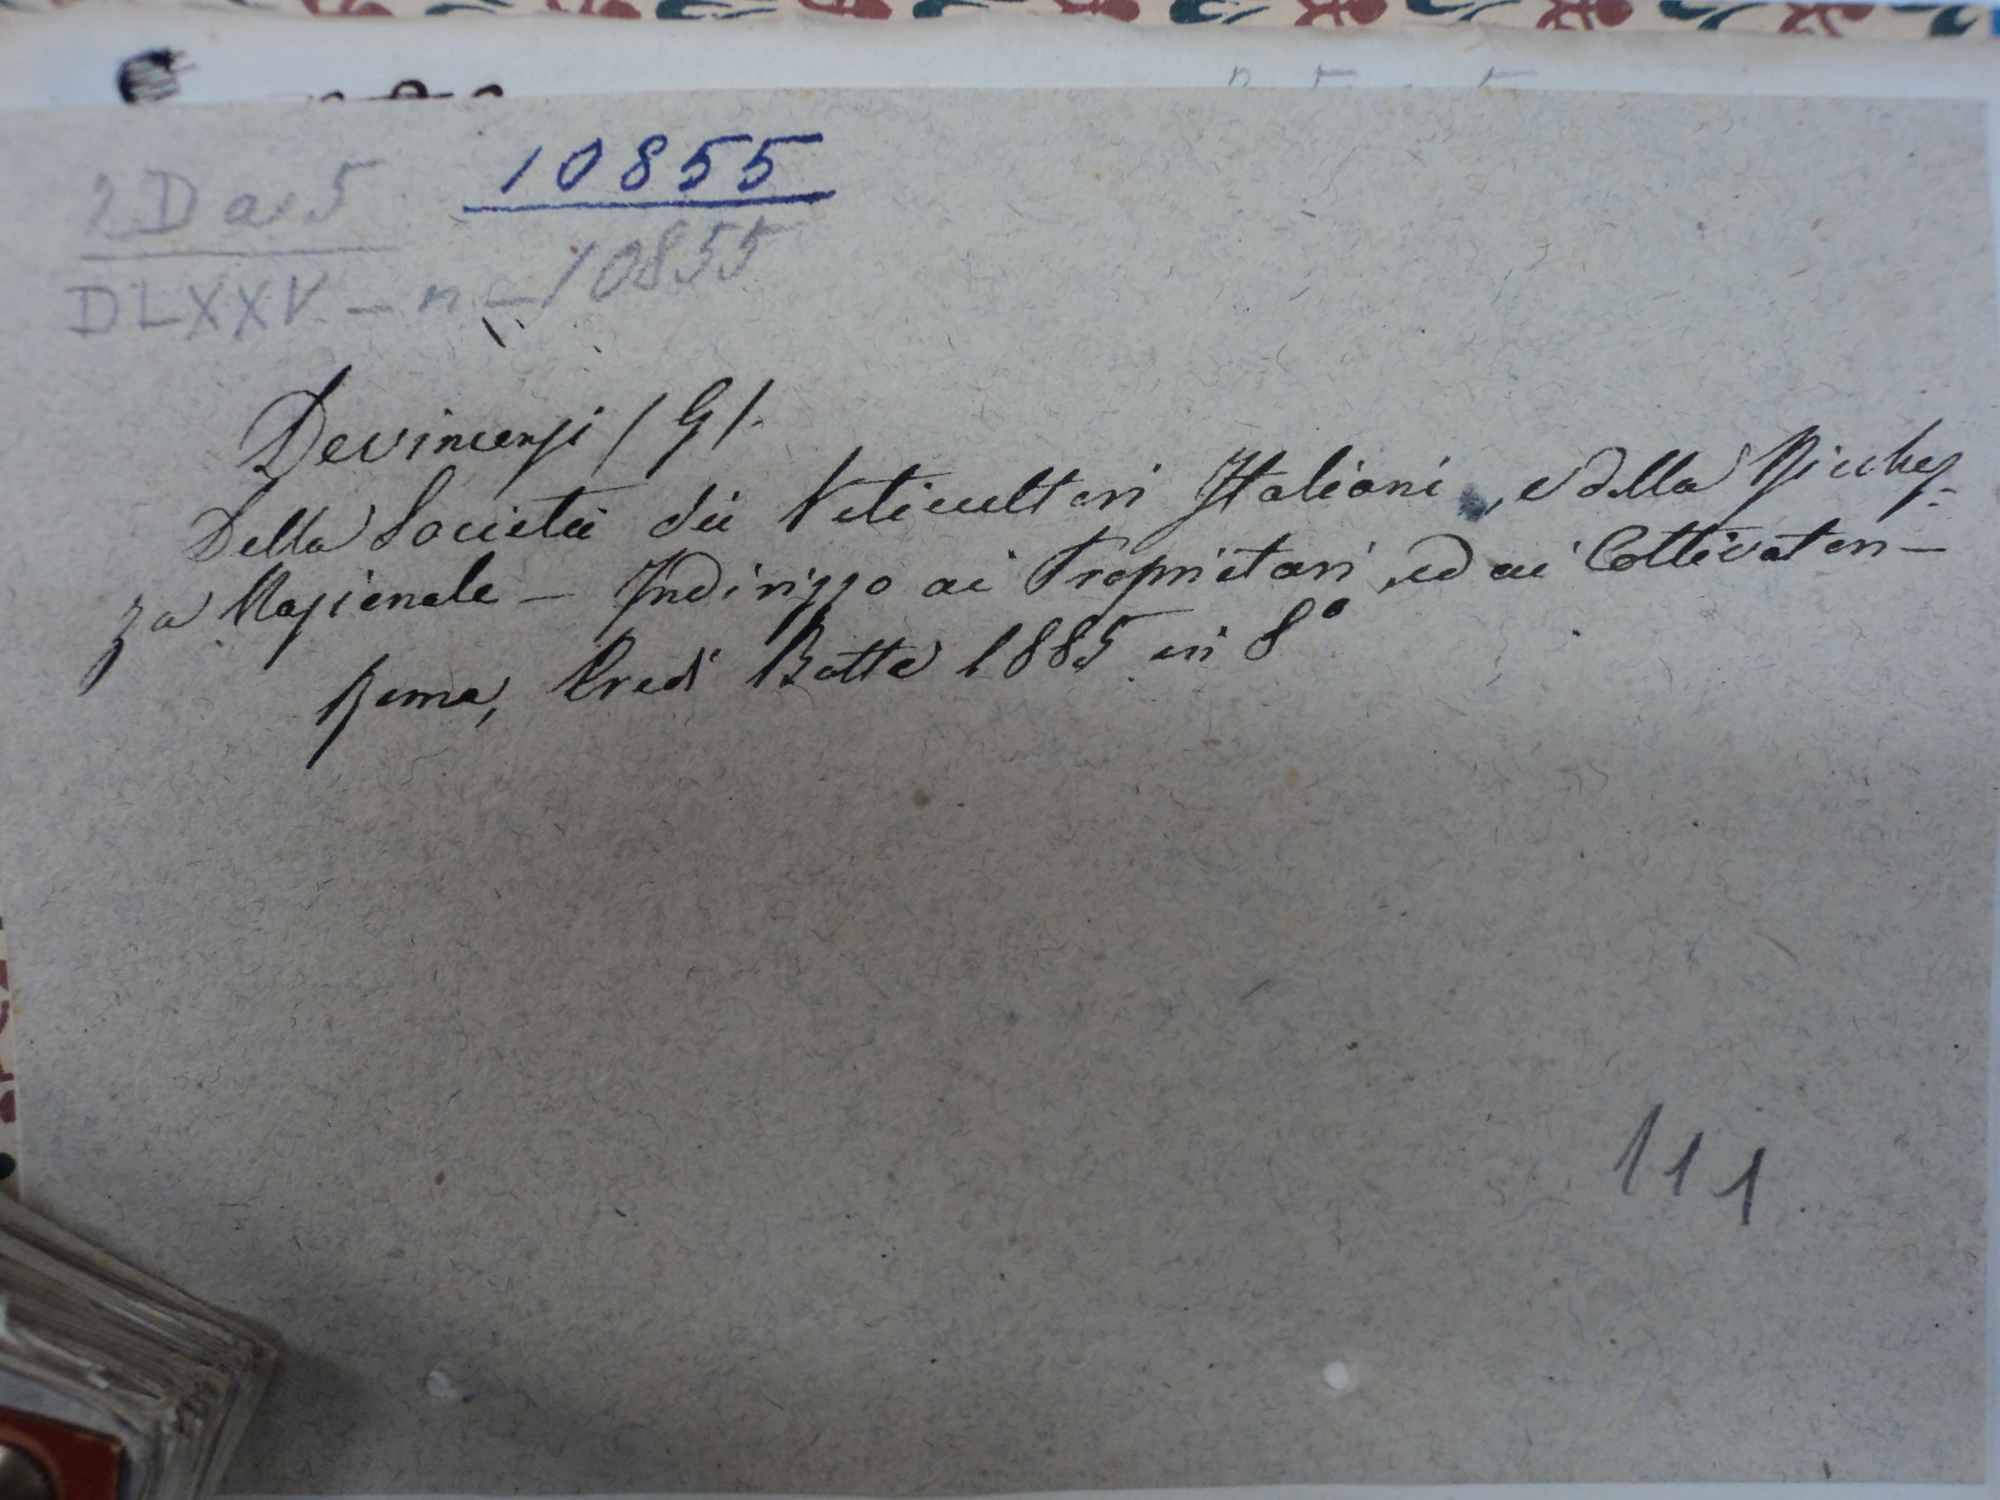 10855
2 D a 5
10855
DLXXV - n -
Devincenzi (G).
Della Società dei Viticultori Italiani, e della Ricchez-
za Nazionale - Indirizzo ai Proprietari, ed ai Coltivatori -
Roma, Eredi Botta 1885 in 8°
111